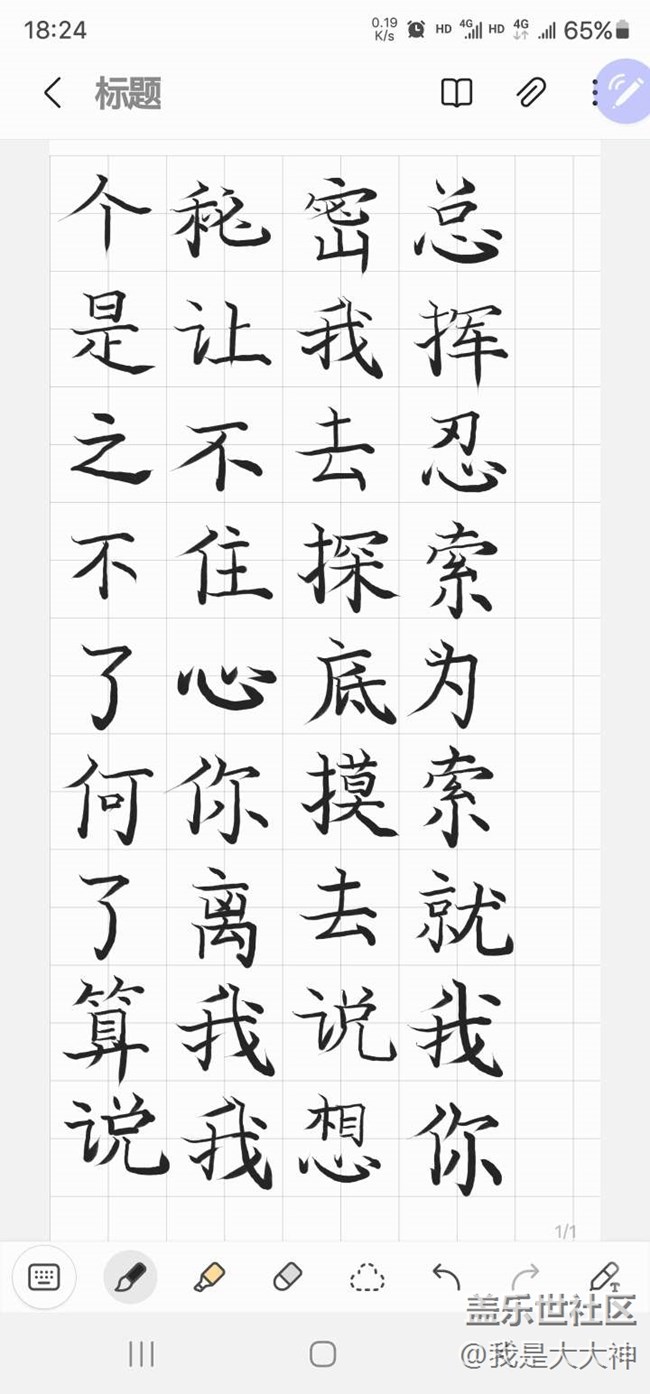 18:24
0.19 K/s HD 4G HD 4G 65%
标题
个秘密总
是让我挥
之不去忍
不住探索
了心底为
何你摸索
了离去就
算我说我
说我想你
1/1
T
盖乐世社区
@我是大大神